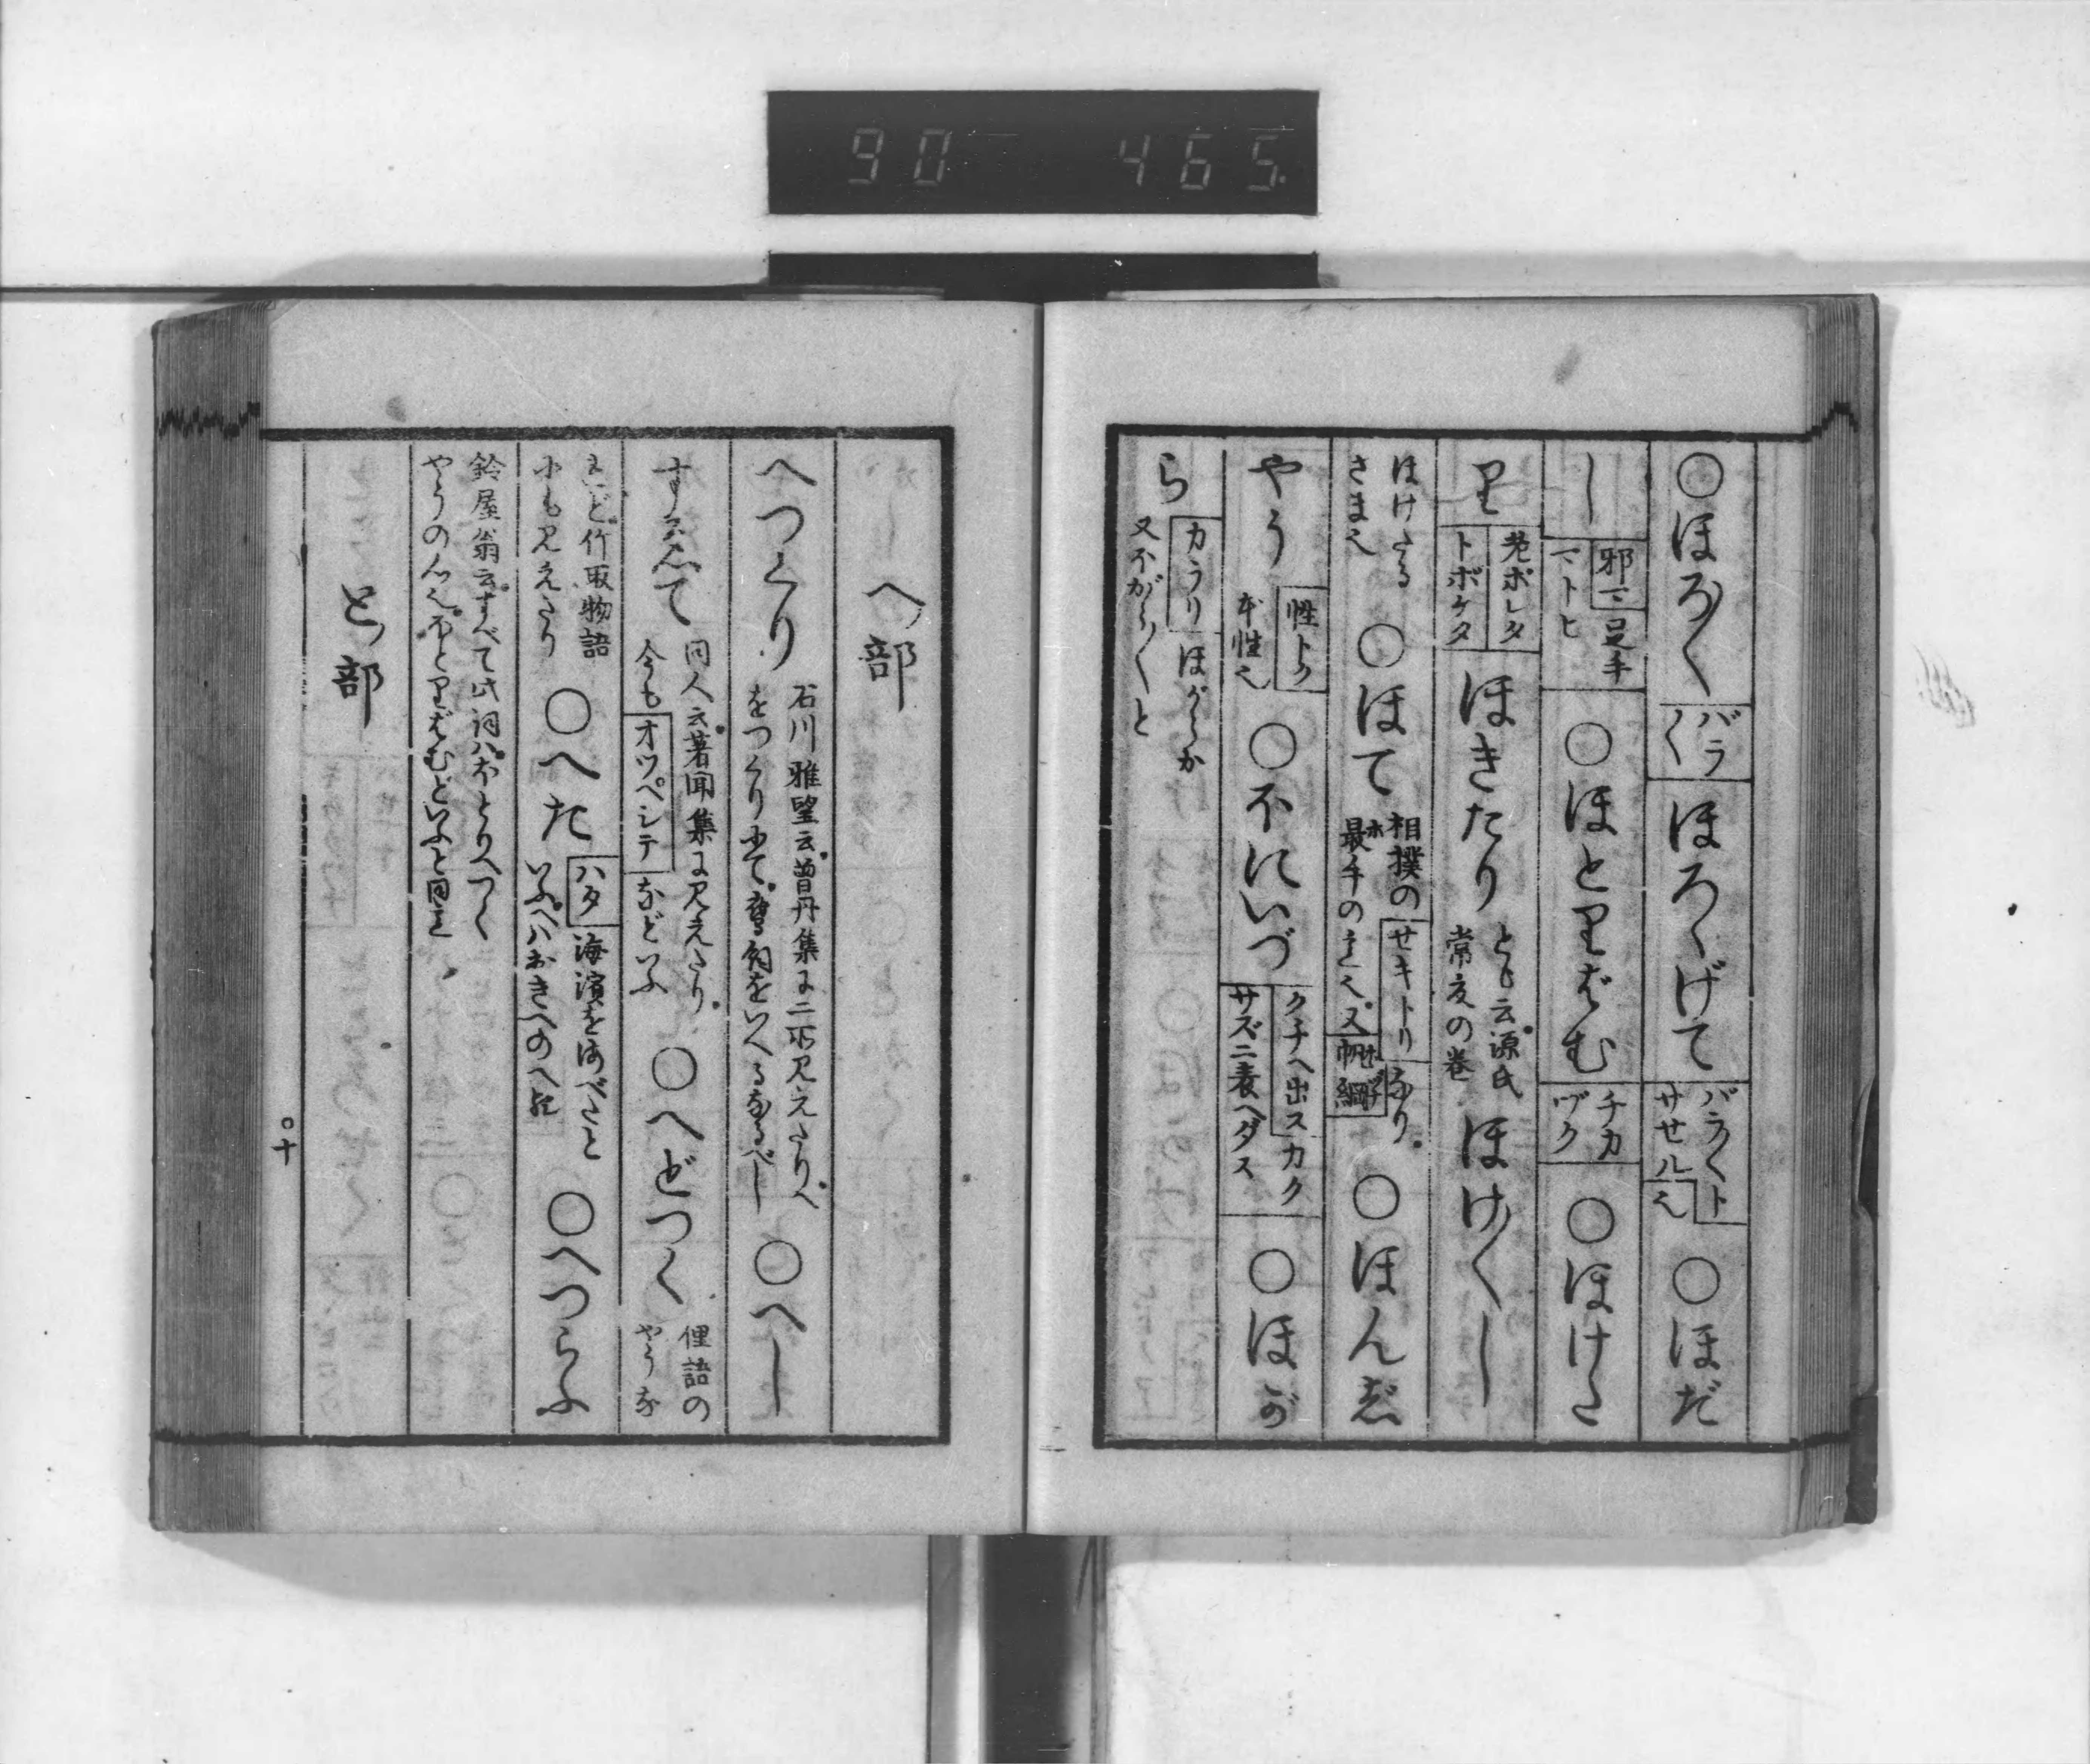 90 465
○ほろ〳〵 バラ〳〵 ほろゝげて バラ〳〵トサセル也 ○ほだ
し 邪广 足手マトヒ ○ほとりばむ チカヅク ○ほけた
り 老ボレタ トボケタ ほきたり とも云源氏常夏の巻 ほけ〳〵し
ほけたるさま也 ○ほて 相撲のセキトリなり。最手の也。又帆綱 ○ほんじ
やう 性トク 本性也 ○ホにいづ クチヘ出ス カクサズニ表ヘダス ○ほが
ら カラリ ほがらか 又ホがら〳〵と
へ部
へつくり 石川雅望云曽丹集に二所見えたり。へをつくりにて。
○へし
すゑて 同人云著聞集に見えたり。今もオツペシテなどいふ ○へどつく 俚語のやうな
れど竹取物語にも見えたり ○へた ハタ 海濱をうみべたといふ。へハおきへのへ ○へつらふ
鈴屋翁云すべて此詞ハ。ホとりへつく
やうの心也。ほとりばむといふと同じ
と部
○十